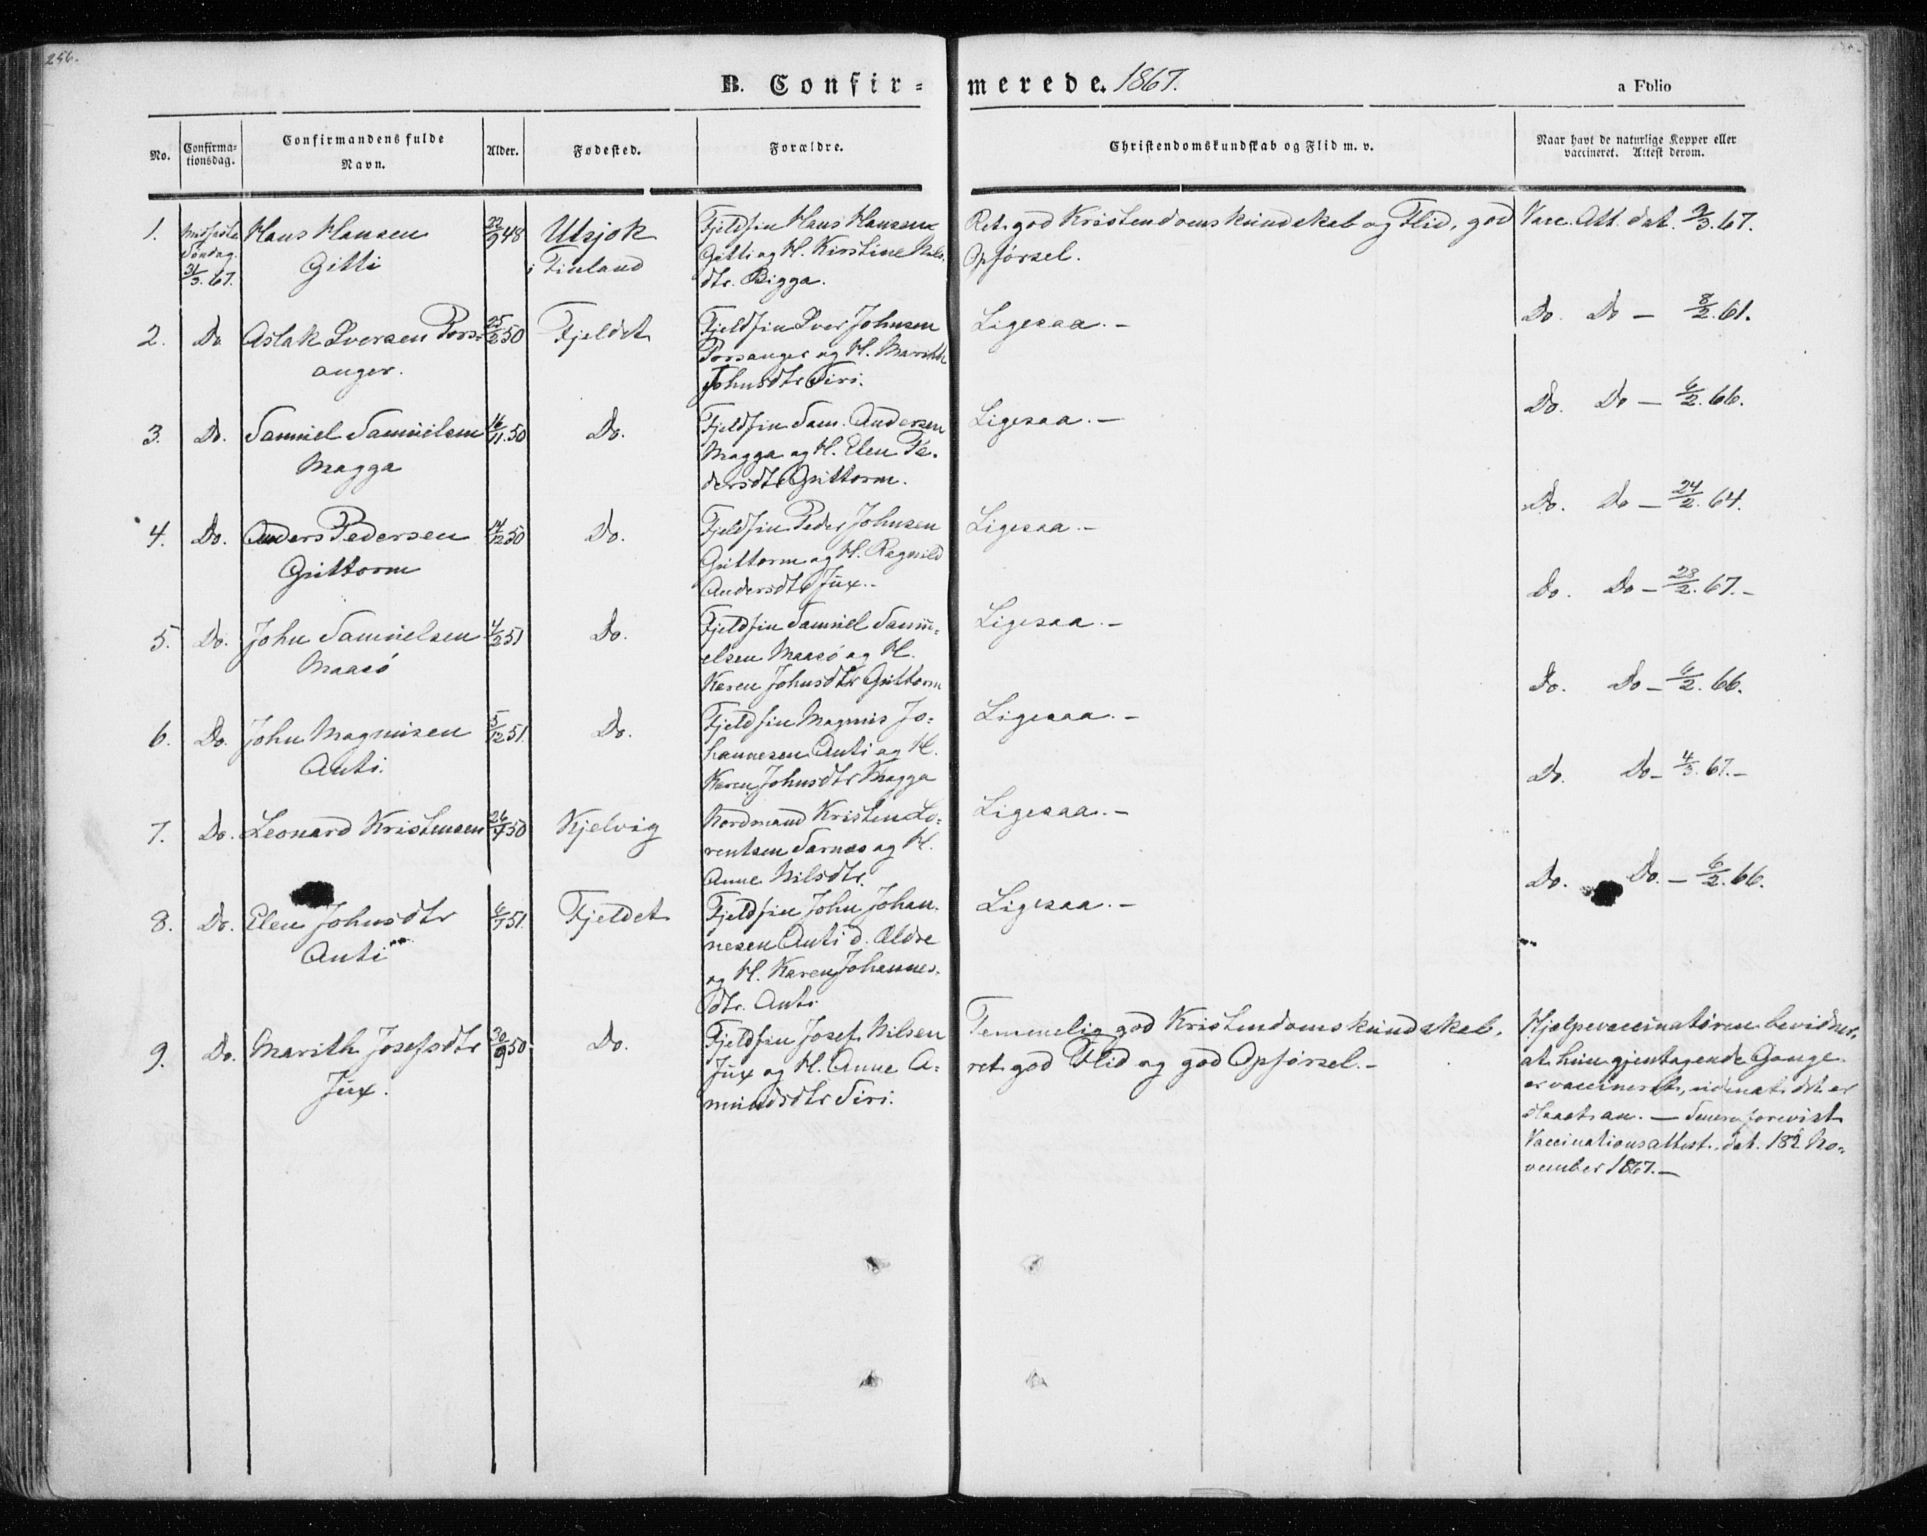 256.
B. Confir= merede. 1867.
a Folio
No.
Confirma-
tionsdag.
Confirmandens fulde
Navn.
Alder.
Fødested.
Forældre.
Christendomskundskab og Flid m. v.
Naar havt de naturlige Kopper eller
vaccineret. Attest derom.
1.
Midfaste
Søndag.
31/3. 67.
Hans Hansen
Gitti
22/9 48
Utsjok
i Finland
Fjeldfin Hans Hansen
Gitti og H. Kirstine Nils.
dtr. Bigga.
Ret god Kristendomskundskab og Flid, god
Opførsel.
Vacc. Att. dat. 9/3. 67.
2.
Do
Aslak Iversen Pors=
anger.
25/2 50
Fjeldet
Fjeldfin Iver Johnsen
Porsanger og H. Marith
Johnsdtr Siri.
Ligesaa. –
Do. Do – 8/2. 61.
3.
Do.
Samuel Samuelsen
Magga
16/11. 50
Do.
Fjeldfin Sam. Andersen
Magga og H. Elen Pe.
dersdtr Guttorm.
Ligesaa. –
Do. Do – 6/2. 66.
4.
Do.
Anders Pedersen
Guttorm
14/12 50
Do.
Fjeldfin Peder Johnsen
Guttorm og H. Ragnild
Andersdtr Jux. –
Ligesaa. –
Do. Do – 24/2. 64.
5.
Do.
John Samuelsen
Maasø
4/2 51
Do.
Fjeldfin Samuel Samu=
elsen Maasø og H.
Karen Johnsdtr Guttorm
Ligesaa. –
Do. Do – 28/2. 67. –
6.
Do.
John Magnusen
Anti.
5/12 51.
Do.
Fjeldfin Magnus Jo=
hannesen Anti og H.
Karen Johnsdtr Magga
Ligesaa. –
Do. Do – 6/2. 66.
7.
Do.
Leonard Kristensen
26/7 50
Kjelvig
Nordmand Kristen Lo=
rentsen Sarnæs og H.
Anne Nilsdtr.
Ligesaa. –
Do. Do – 4/3. 67. –
8.
Do.
Elen Johnsdtr
Anti
6/7 51.
Fjeldet
Fjeldfin John Johan.
nesen Anti d. Ældre
og H. Karen Johannes.
dtr. Anti
Ligesaa. –
Do. Do. – 6/2. 66.
9.
Do.
Marith Josefsdtr
Jux.
30/9 50
Do.
Fjeldfin Josef Nilsen
Jux og H. Anne A=
mundsdtr Siri.
Temmelig god Kristendomskundskab,
ret god Flid og god Opførsel. –
Hjelpevaccinatøren bevidner,
at hun gjentagende Gange
er vaccineret, uden at det er
slaaet an. – Senere forevist
Vaccinationsattest. dat. 18 No=
vember 1867. –